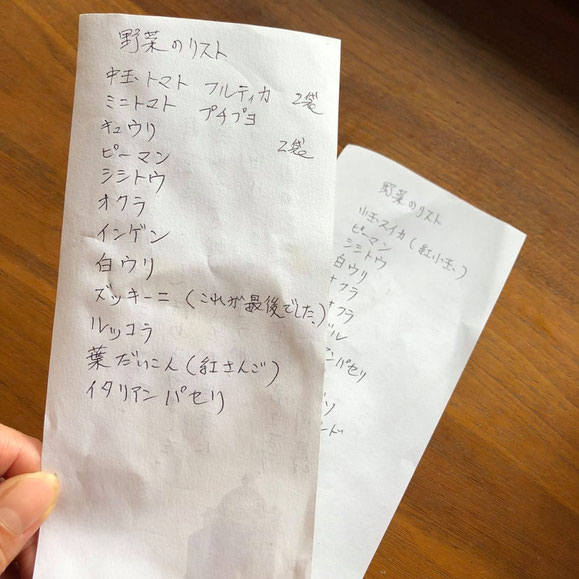 野菜のリスト
中玉トマト フルティカ 2袋
ミニトマト プチプヨ
キュウリ 2袋
ピーマン
シシトウ
オクラ
インゲン
白ウリ
ズッキーニ (これが最後でした)
ルッコラ
葉だいこん (紅さんご)
イタリアン パセリ
野菜のリスト
小玉スイカ (紅小玉)
ピーマン
シシトウ
白ウリ
オクラ
パセリ